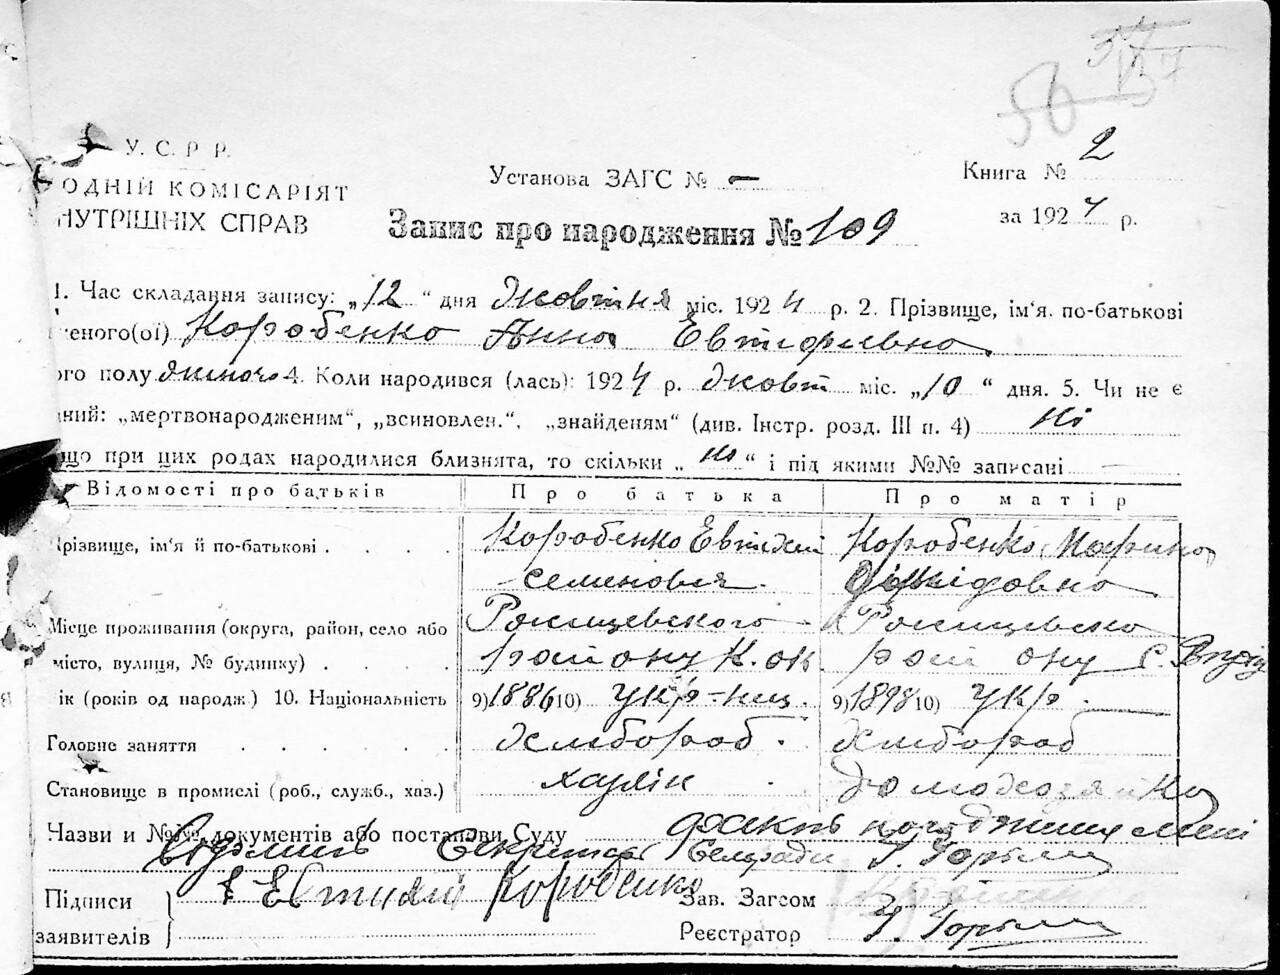 56
У. С. Р. Р.
ОДНІЙ КОМІСАРІЯТ
НУТРІШНІХ СПРАВ
Установа ЗАГС № —
Книга № 2
за 1924 р.
Запис про народження № 109
1. Час складання запису: „12" дня Жовтня міс. 1924 р. 2. Прізвище, ім'я. по-батькові
еного(ої) Коробенко Анна Евтифіевна
ого полу жіночо 4. Коли народився (лась): 1924 р. жовт міс. „10" дня. 5. Чи не є
ний: „мертвонародженим", „всиновлен.", „знайденям" (див. Інстр. розд. III п. 4) ні
що при цих родах народилися близнята, то скільки „ні" і під якими №№ записані —
Відомості про батьків
Про батька
Про матір
Прізвище, ім'я й по-батькові
Коробенко Евтихий
Коробенко Марина
Семенович
Місце проживання (округа, район, село або
місто, вулиця, № будинку)
району К. ок
району с.
ік (років од народж.) 10. Національність
9) 1886 10) укр-нец.
9) 1898 10) укр.
Головне заняття
хлібороб.
хлібороб
Становище в промислі (роб., служб., хаз.)
хазяін
домохозяйка
Назви и №№ документів або постанови Суду факт народження мені
відомий Секретарь Сельради
Підписи
заявителів
Евтихий Коробенко
Зав. Загсом
Реєстратор